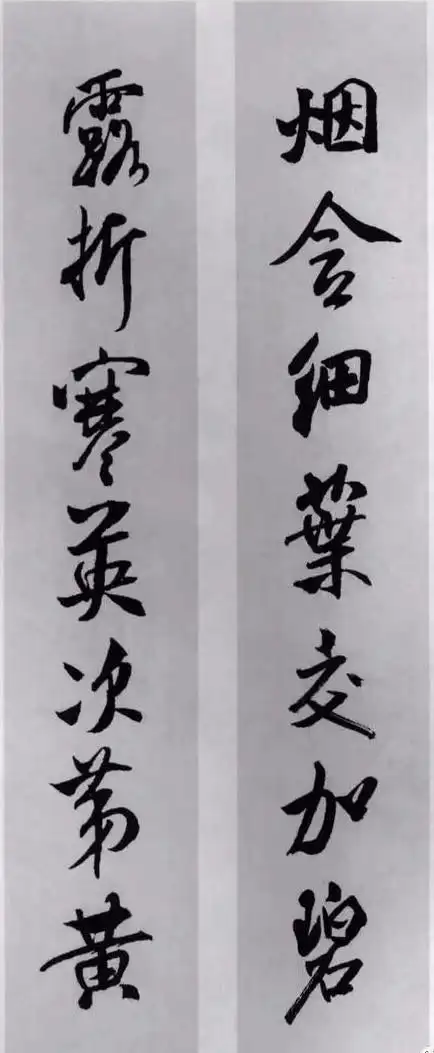 烟含细葉交加碧
露折寒英次第黄